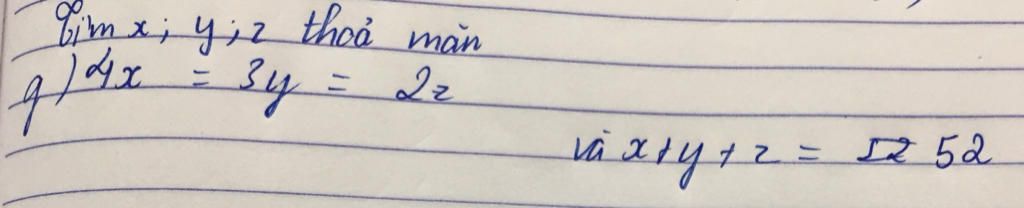 Tìm x; y; z thoả mãn
g) 4x = 3y = 2z
và x + y + z = 52